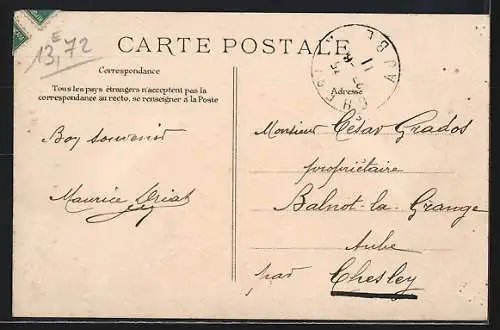 13,72 E
CARTE POSTALE
Correspondance
Tous les pays étrangers n'acceptent pas la
correspondance au recto, se renseigner à la Poste
Adresse
Bon souvenir
Maurice
Monsieur César Grados
propriétaire
Balnot-la-Grange
Aube
par Chesley